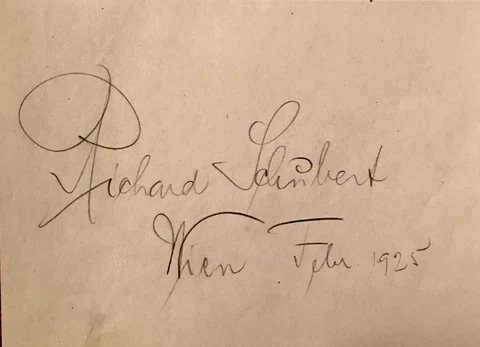 Richard Schubert
Wien Febr 1925